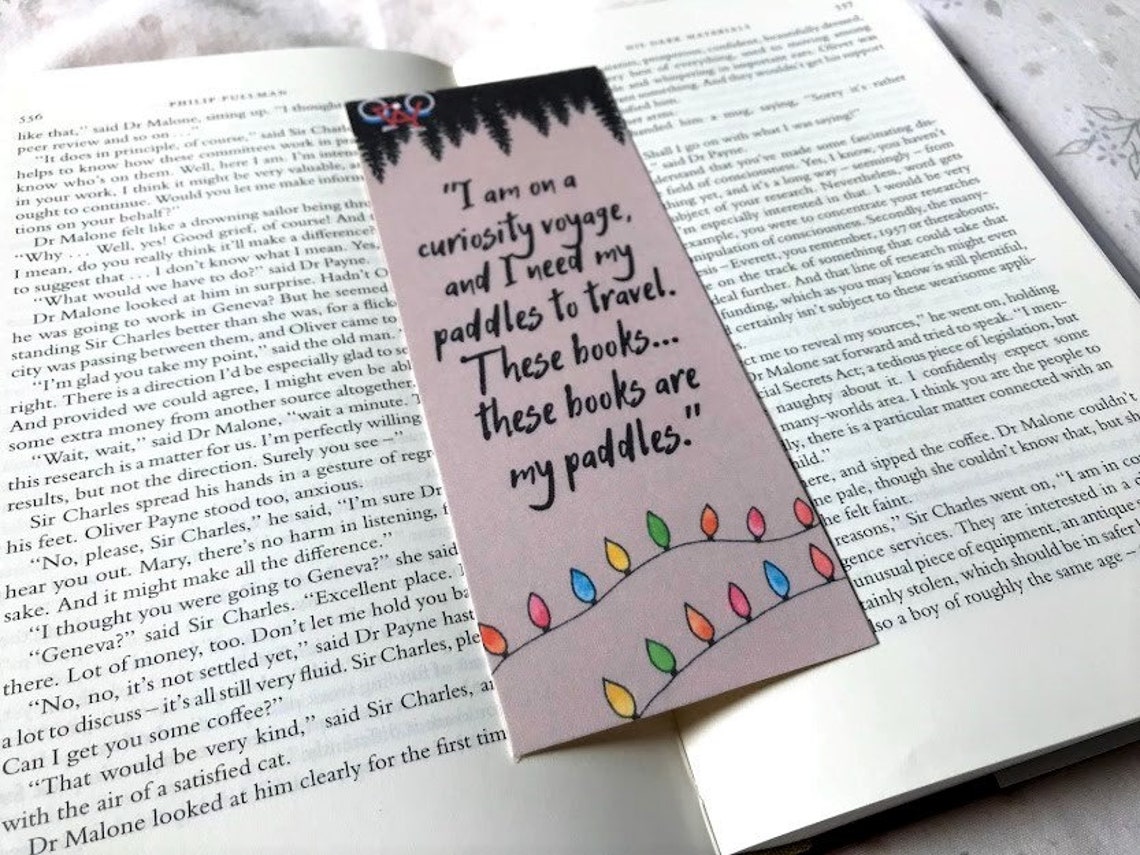 556
PHILIP PULLMAN
like that," said Dr Malone, sitting up. "I thought
peer review and so on . . ."
"It does in principle, of course," said Sir Charles
helps to know how these committees work in
know who's on them. Well, here I am. I'm
in your work, I think it might be very valuable,
ought to continue. Would you let me make
tions on your behalf?"
Dr Malone felt like a drowning sailor being
"Why . . . Well, yes! Good grief, of course! And
I mean, do you really think it'll make a difference
to suggest that . . . I don't know what I mean. Yes,
"What would we have to do?" said Dr Payne.
Dr Malone looked at him in surprise. Hadn't
he was going to work in Geneva? But he seemed
standing Sir Charles better than she was, for a
city was passing between them, and Oliver came to
"I'm glad you take my point," said the old man.
right. There is a direction I'd be especially glad to
And provided we could agree, I might even be
some extra money from another source altogether.
"Wait, wait," said Dr Malone, "wait a minute.
this research is a matter for us. I'm perfectly willing
results, but not the direction. Surely you see –"
Sir Charles spread his hands in a gesture of
his feet. Oliver Payne stood too, anxious.
"No, please, Sir Charles," he said, "I'm sure Dr
hear you out. Mary, there's no harm in listening,
sake. And it might make all the difference."
"I thought you were going to Geneva?" she said
"Geneva?" said Sir Charles. "Excellent place.
there. Lot of money, too. Don't let me hold you
"No, no, it's not settled yet," said Dr Payne
a lot to discuss – it's all still very fluid. Sir Charles,
Can I get you some coffee?"
"That would be very kind," said Sir Charles,
with the air of a satisfied cat.
Dr Malone looked at him clearly for the first
"I am on a
curiosity voyage,
and I need my
paddles to travel.
These books...
these books are
my paddles."
HIS DARK MATERIALS
mug, saying, "Sorry it's rather
Shall I go on with what I was saying?"
said Dr Payne.
that you've made some fascinating
field of consciousness. Yes, I know, you haven't
yet, and it's a long way – seemingly – from
subject of your research. Nevertheless, word gets
especially interested in that. I would be very
you were to concentrate your researches
manipulation of consciousness. Secondly, the many
– Everett, you remember, 1957 or thereabouts,
on the track of something that could take that
deal further. And that line of research might even
funding, which as you may know is still plentiful,
certainly isn't subject to these wearisome
me to reveal my sources," he went on, holding
Dr Malone sat forward and tried to speak. "I
Secrets Act; a tedious piece of legislation, but
naughty about it. I confidently expect some
many-worlds area. I think you are the people to
there is a particular matter connected with an
here, and sipped the coffee. Dr Malone couldn't
pale, though she couldn't know that, but
felt faint.
reasons," Sir Charles went on, "I am in
services. They are interested in a
unusual piece of equipment, an antique
stolen, which should be in safer
a boy of roughly the same age –